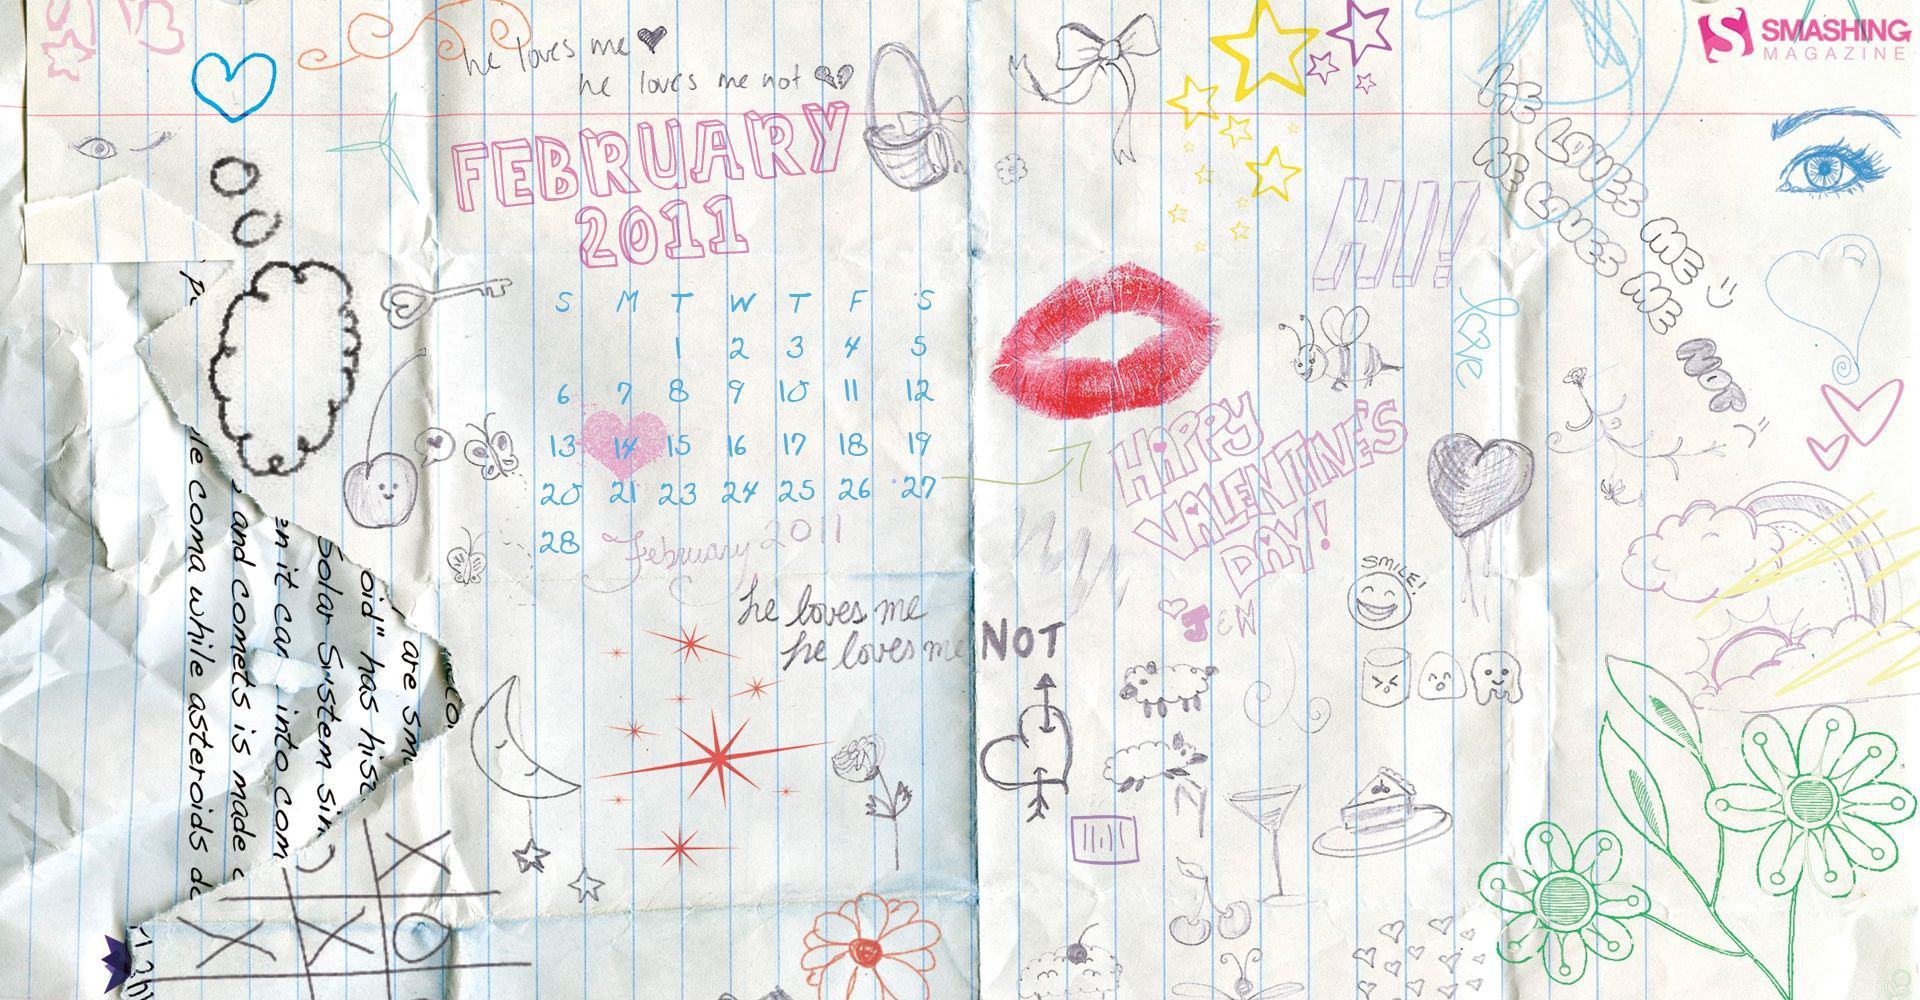 he loves me
he loves me not
FEBRUARY
2011
S M T W T F S
1 2 3 4 5
6 7 8 9 10 11 12
13 14 15 16 17 18 19
20 21 23 24 25 26 27
28
February 2011
he loves me
he loves me NOT
SMASHING
MAGAZINE
HE LOVES ME
HE LOVES ME NOT
HI!
love
HAPPY
VALENTINE'S
DAY!
JEN
SMILE!
are sma
oid" has hisa
Solar Sistem sin
en it can into com
and comets is made
le coma while asteroids
X
X X O